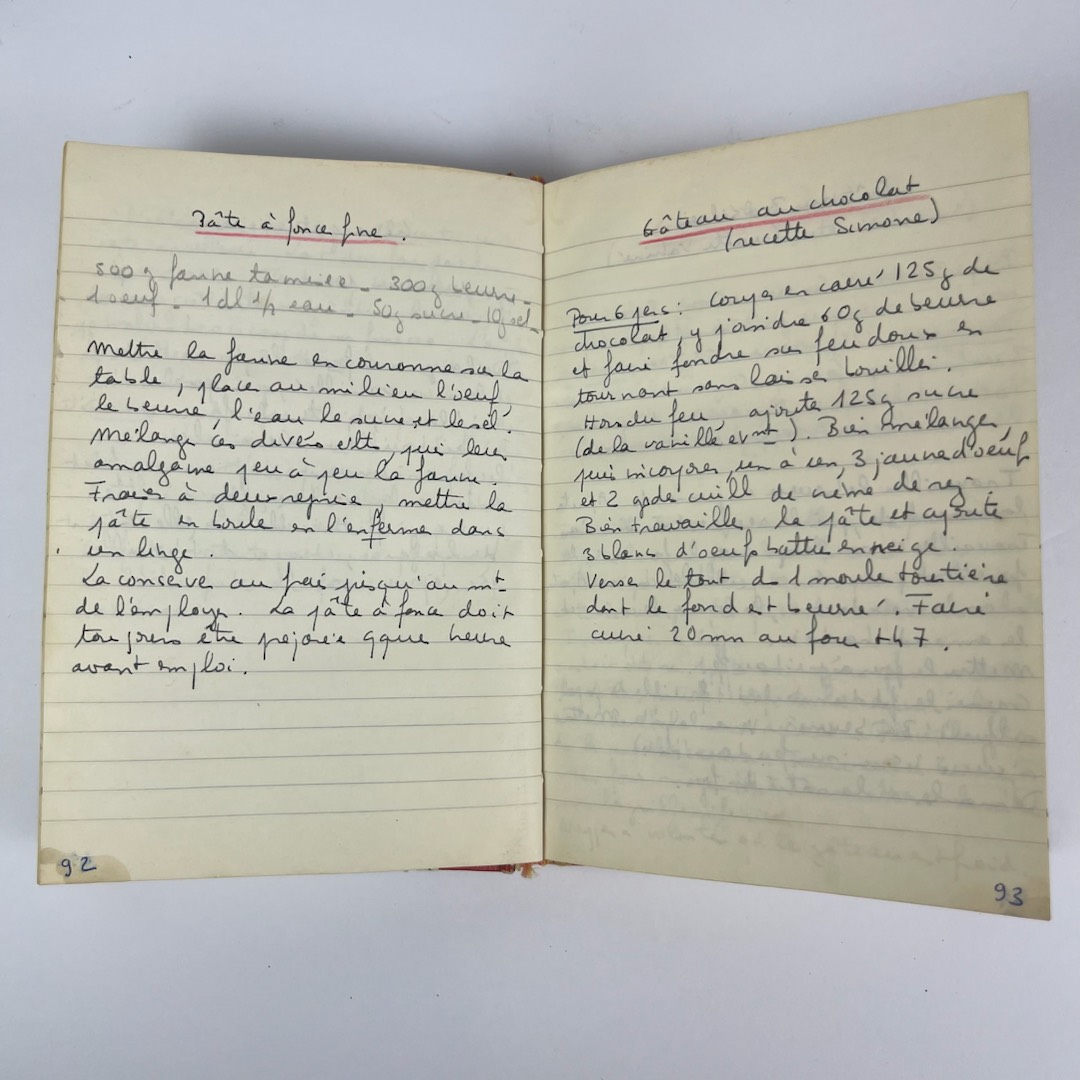 Pâte à foncer fine.
500 g farine tamisée _ 300 g beurre _
1 oeuf _ 1 dl 1/2 eau _ 50 g sucre _ 10 g sel _
Mettre la farine en couronne sur la
table, placer au milieu l'oeuf,
le beurre, l'eau le sucre et le sel.
Mélanger ces divers elts, puis leur
amalgamer peu à peu la farine.
Fraiser à deux reprises, mettre la
pâte en boule en l'enfermer dans
un linge.
La conserver au frais jusqu'au mt
de l'employer. La pâte à foncer doit
toujours être préparée qque heure
avant emploi.
92
Gâteau au chocolat
(recette Simone)
Pour 6 pers : Couper en carré 125 g de
chocolat, y joindre 60 g de beurre
et faire fondre sur feu doux en
tournant sans laisser bouillir.
Hors du feu, ajouter 125 g sucre
(de la vanille evnt). Bien mélanger,
puis incorporer, un à un, 3 jaunes d'oeuf
et 2 gdes cuill de crème de riz.
Bien travailler la pâte et ajouter
3 blancs d'oeufs battus en neige.
Verser le tout ds 1 moule tourtière
dont le fond est beurré. Faire
cuire 20 mn au four th 7.
93